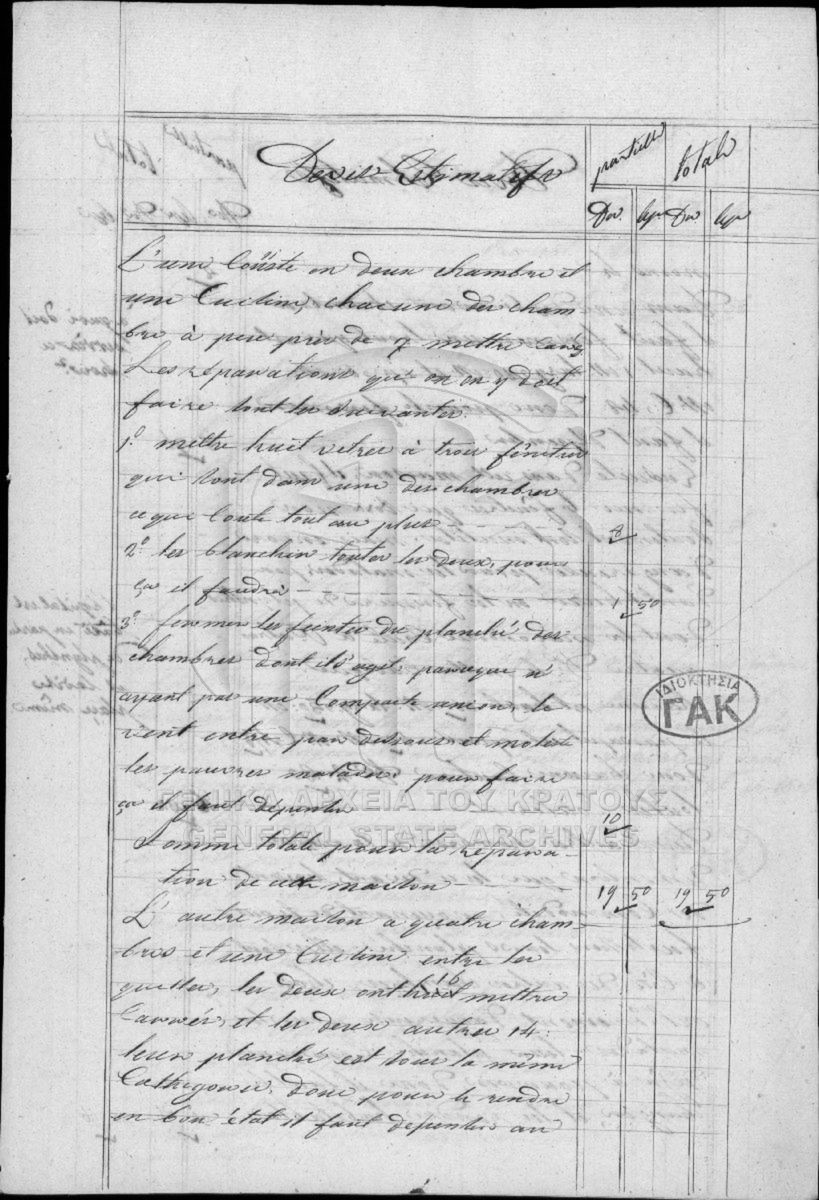 Devis Estimatifs
partielle totale
Dr. lep Dr. lep
L'une Coûste en deux chambre et
une Cucline, chacune des cham-
bre à peu près de 7 mettre carrés
Les réparations qu'on on y doit
faire sont les suivantes.
1º mettre huit vitres à trois fenêtres
qui sont dans une des chambres
ce que coute tout au plus 8
2º les blanchir toutes les deux, pour
ça il faudra 1 50
3º fermer les feintes du planché des
chambres dont il s'agit, parceque n'
ayant pas une Compacte union, le
vent entre par dessous et moleste
les pauvres malades: pour faire
ça il faut dépenser 10
Somme totale pour la répara-
tion de cette maison 19 50 19 50
L'autre maison a quatre cham-
bres et une Cucline entre les
quelles, les deux ont 16 mettres
Carrés, et les deux autres 14:
leur planché est sous la même
Cathegorie, donc pour le rendre
en bon état il faut dépenser au
ΙΔΙΟΚΤΗΣΙΑ
ΓΑΚ
ΓΕΝΙΚΑ ΑΡΧΕΙΑ ΤΟΥ ΚΡΑΤΟΥΣ
GENERAL STATE ARCHIVES